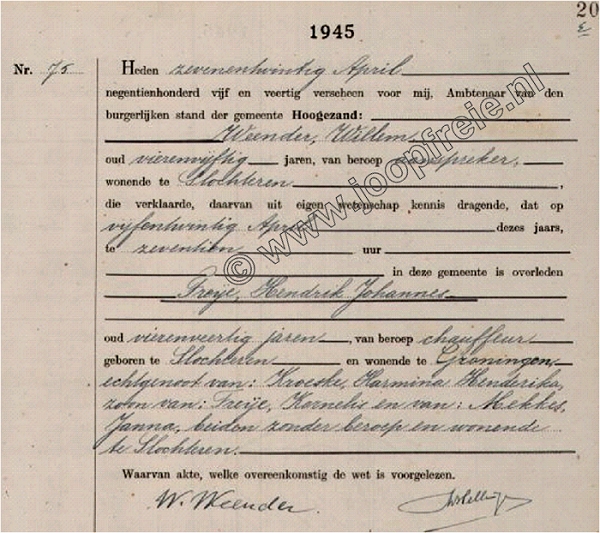 20
1945
Nr. 75
Heden zevenentwintig April
negentienhonderd vijf en veertig verscheen voor mij, Ambtenaar van den
burgerlijken stand der gemeente Hoogezand:
Weender, Willem,
oud vierenvijftig jaren, van beroep aanspreker,
wonende te Slochteren,
die verklaarde, daarvan uit eigen wetenschap kennis dragende, dat op
vijfentwintig April dezes jaars,
te zeventien uur
in deze gemeente is overleden
Freije, Hendrik Johannes
oud vierenveertig jaren, van beroep chauffeur
geboren te Slochteren en wonende te Groningen,
echtgenoot van: Kroeske, Harmina Henderika,
zoon van: Freije, Kornelis en van: Mekkes,
Janna, beiden zonder beroep en wonende
te Slochteren.
Waarvan akte, welke overeenkomstig de wet is voorgelezen.
W. Weender.
© www.joopfreie.nl